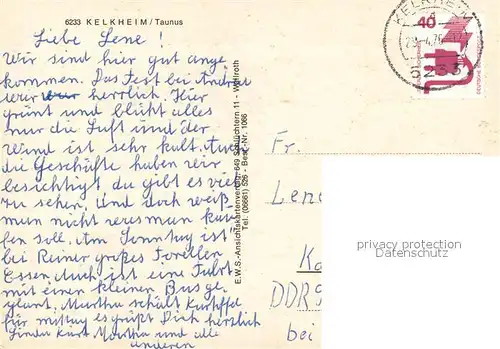 6233 KELKHEIM/Taunus
Liebe Lene!
Wir sind hier gut ange
kommen. Das Fest bei
war herrlich. Hier
grünt und blüht alles
nur die Luft und der
Wind ist sehr kalt. Auch
die Geschäfte haben wir
besichtigt du gibt es viel
zu sehen. Und doch weiß
man nicht was man kau
fen soll. Am Sonntag ist
bei Reiner großes Forellen
Essen. Auch ist eine Fahrt
mit einer kleinen Bus ge
plant. Martha schält Kartoffel
für mittag es grüßt Dich herzlich
Linda Kurt Martha und alle
anderen
E.W.S.-Ansichtskartenverlag 649 Schlüchtern 11
Tel. (06661) 526 - Best.-Nr. 1066
KELKHEIM
6233
40
DEUTSCHE BUNDESPOST
Fr.
Len
Ka
DDR 9
bei
privacy protection
Datenschutz